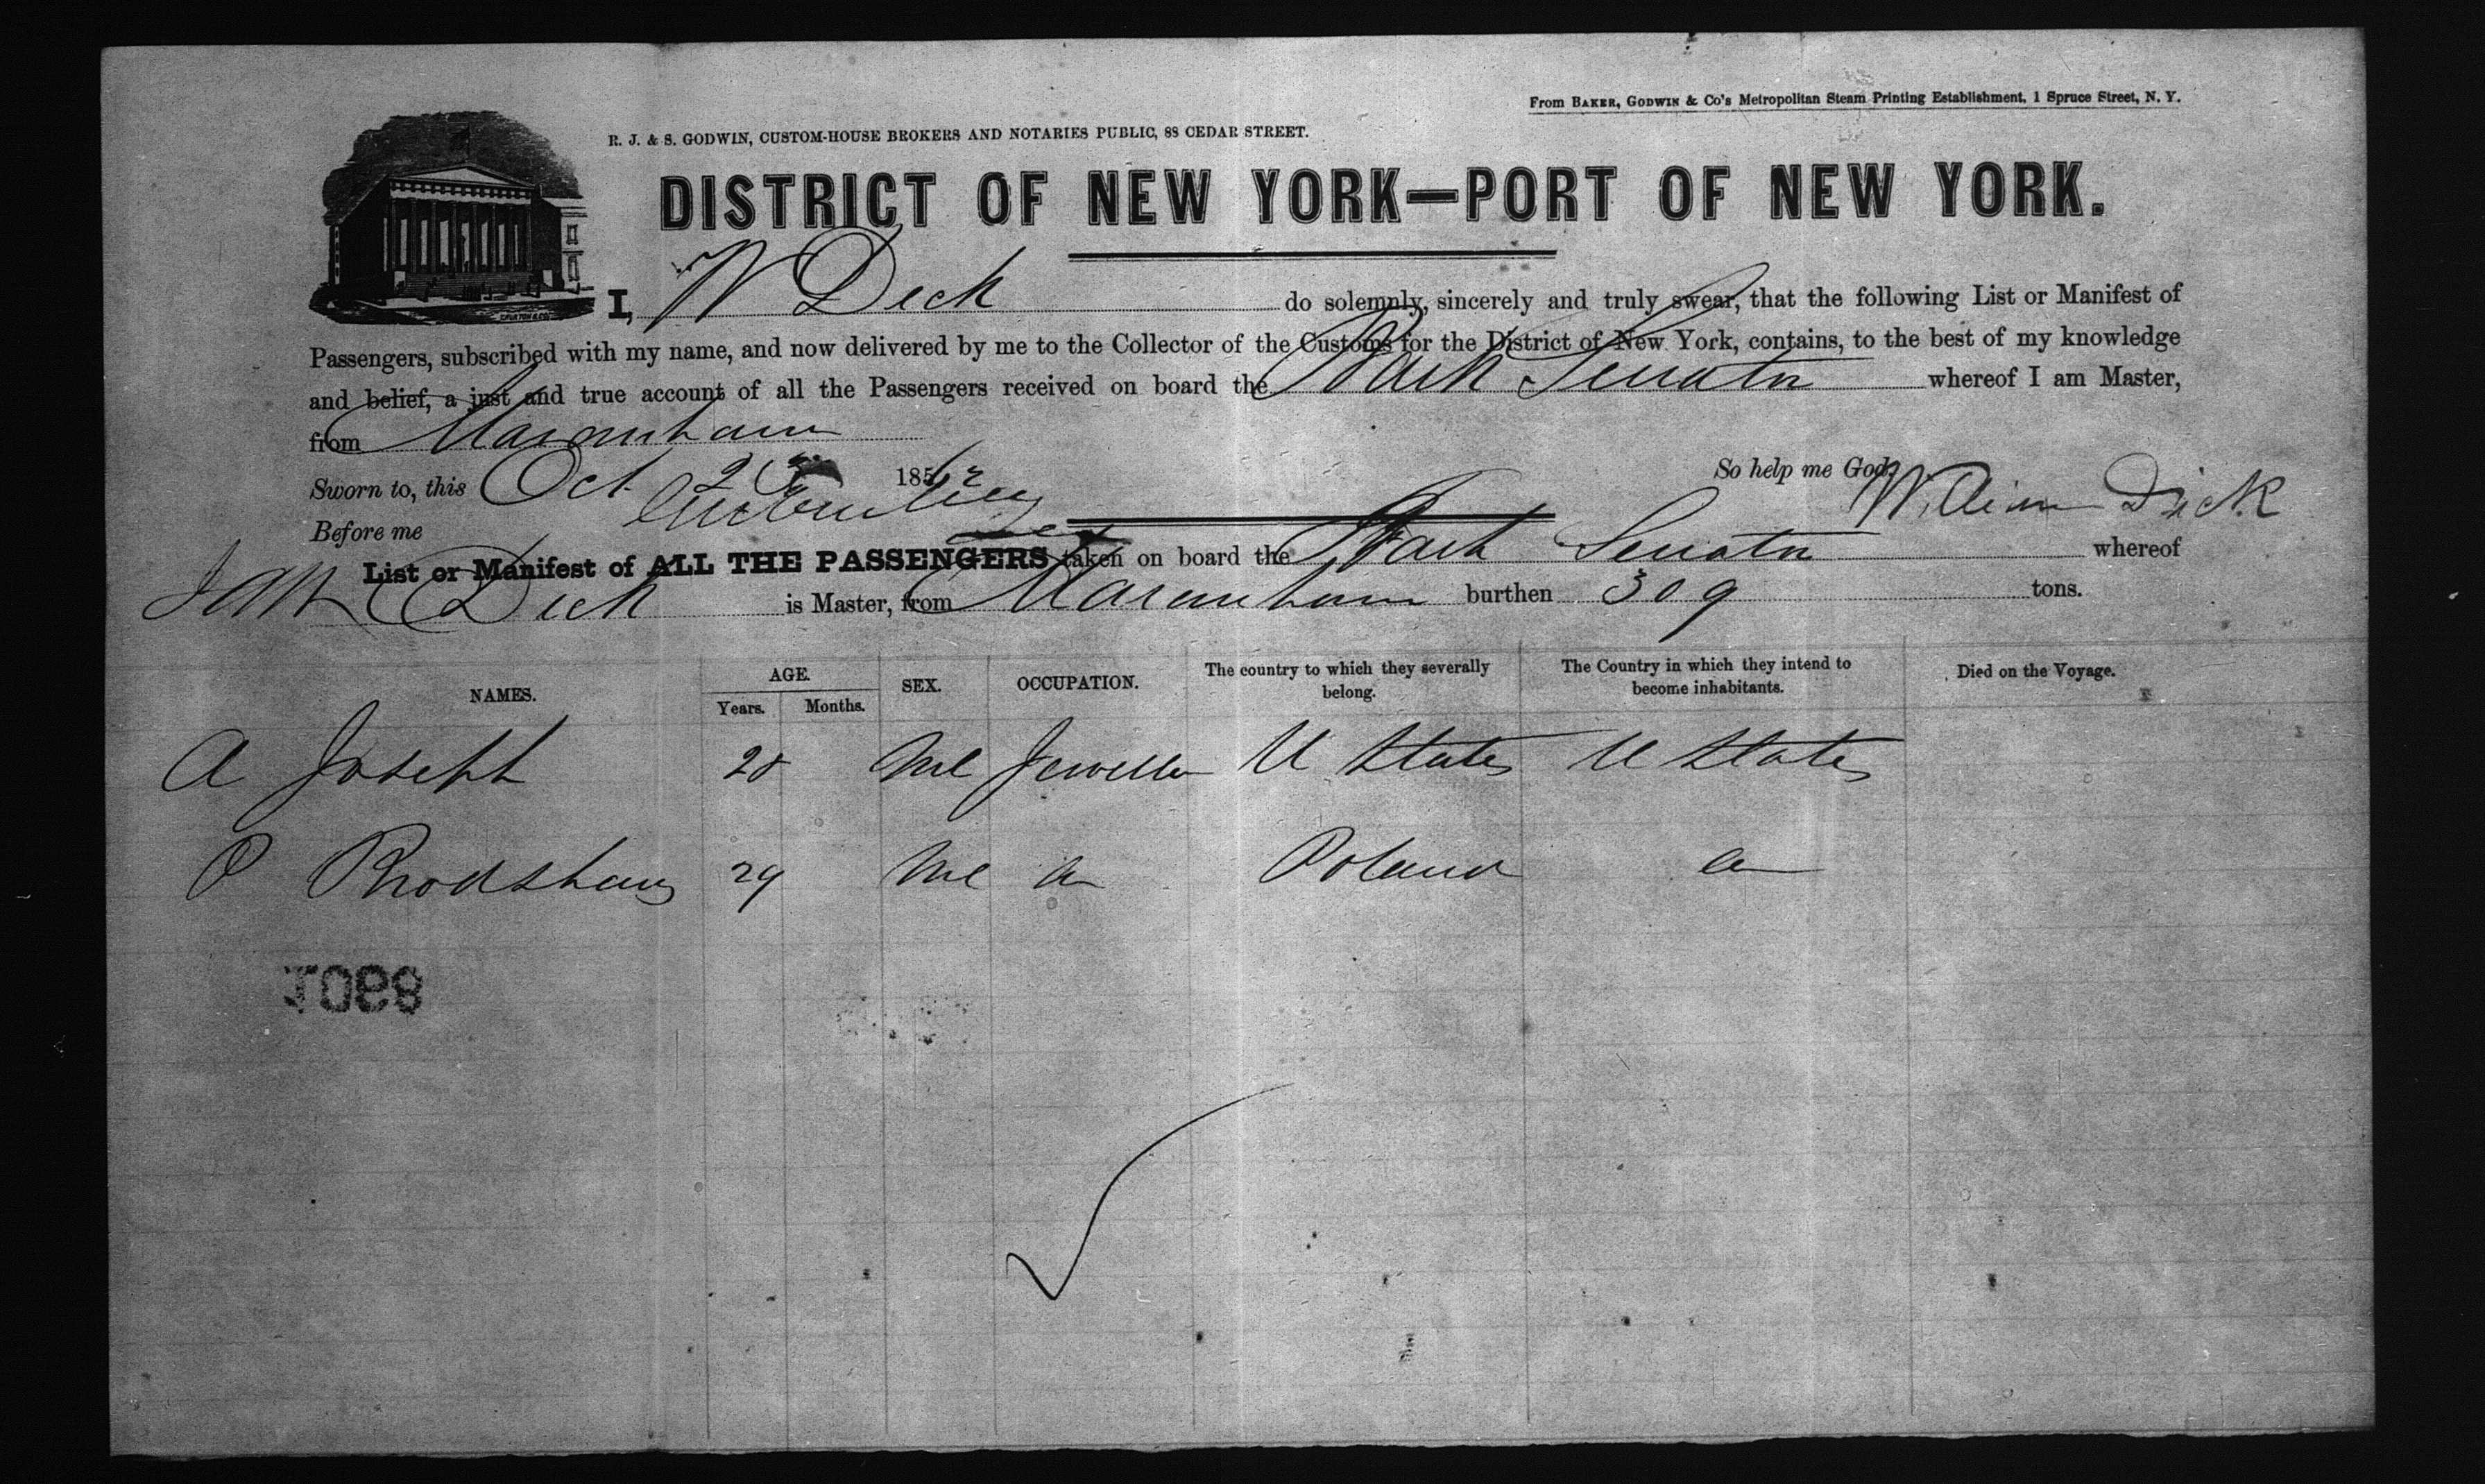 From BAKER, GODWIN & Co's Metropolitan Steam Printing Establishment, 1 Spruce Street, N. Y.
R. J. & S. GODWIN, CUSTOM-HOUSE BROKERS AND NOTARIES PUBLIC, 88 CEDAR STREET.
DISTRICT OF NEW YORK—PORT OF NEW YORK.
I, W Dick do solemnly, sincerely and truly swear, that the following List or Manifest of
Passengers, subscribed with my name, and now delivered by me to the Collector of the Customs for the District of New York, contains, to the best of my knowledge
and belief, a just and true account of all the Passengers received on board the Bark Senator whereof I am Master,
from Maranham
Sworn to, this Oct 23 1862 So help me God. William Dick
Before me
List or Manifest of ALL THE PASSENGERS taken on board the Bark Senator whereof
Dick is Master, from Maranham burthen 309 tons.
NAMES. AGE. Years. Months. SEX. OCCUPATION. The country to which they severally belong. The Country in which they intend to become inhabitants. Died on the Voyage.
A Joseph 28 Ml Jeweller U States U States
29 Ml Poland
1099